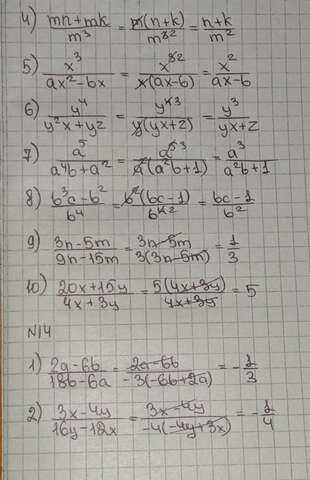 4) (mn+mk)/m³ = m(n+k)/m³² = (n+k)/m²
5) x³/(ax²-bx) = x³²/(x(ax-b)) = x²/(ax-b)
6) y⁴/(y²x+yz) = y⁴³/(y(yx+z)) = y³/(yx+z)
7) a⁵/(a⁴b+a²) = a⁵³/(a²(a²b+1)) = a³/(a²b+1)
8) (b³c-b²)/b⁴ = b²(bc-1)/b⁴² = (bc-1)/b²
9) (3n-5m)/(9n-15m) = (3n-5m)/(3(3n-5m)) = 1/3
10) (20x+15y)/(4x+3y) = 5(4x+3y)/(4x+3y) = 5
N14
1) (2a-6b)/(18b-6a) = (2a-6b)/(-3(-6b+2a)) = -1/3
2) (3x-4y)/(16y-12x) = (3x-4y)/(-4(-4y+3x)) = -1/4